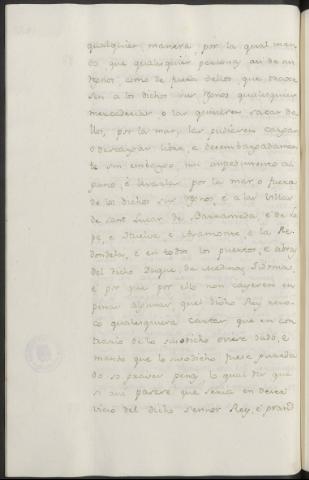 qualquier manera, por la qual man-
da que qualesquier personas asi de sus
Reynos, como de fuera dellos, que traxe-
sen a los dichos sus Reynos qualesquier
mercaderias o las quisieren sacar de-
llos, por la mar, las pudiesen cargar
o descargar libre, e desembargadamen-
te sin embargo, nin impedimento al-
guno, e levarlas por la mar, o fuera
de los dichos sus Reynos, e a las Villas
de Sant Lucar de Barrameda, e de Le-
pe, e Huelva e Ayamonte, e la Re-
dondela, e en todos los puertos, e abras
del dicho Duque, de Medina Sidonia,
e por que por ello non cayesen en
penas algunas, quel dicho Rey revo-
có qualesquiera cartas que en con-
trario de lo susodicho oviere dado, e
mando que lo susodicho fuese guarda-
do so graves penas lo qual diz que
si asi pasase que seria en deser-
vicio del dicho Sennor Rey, e grand